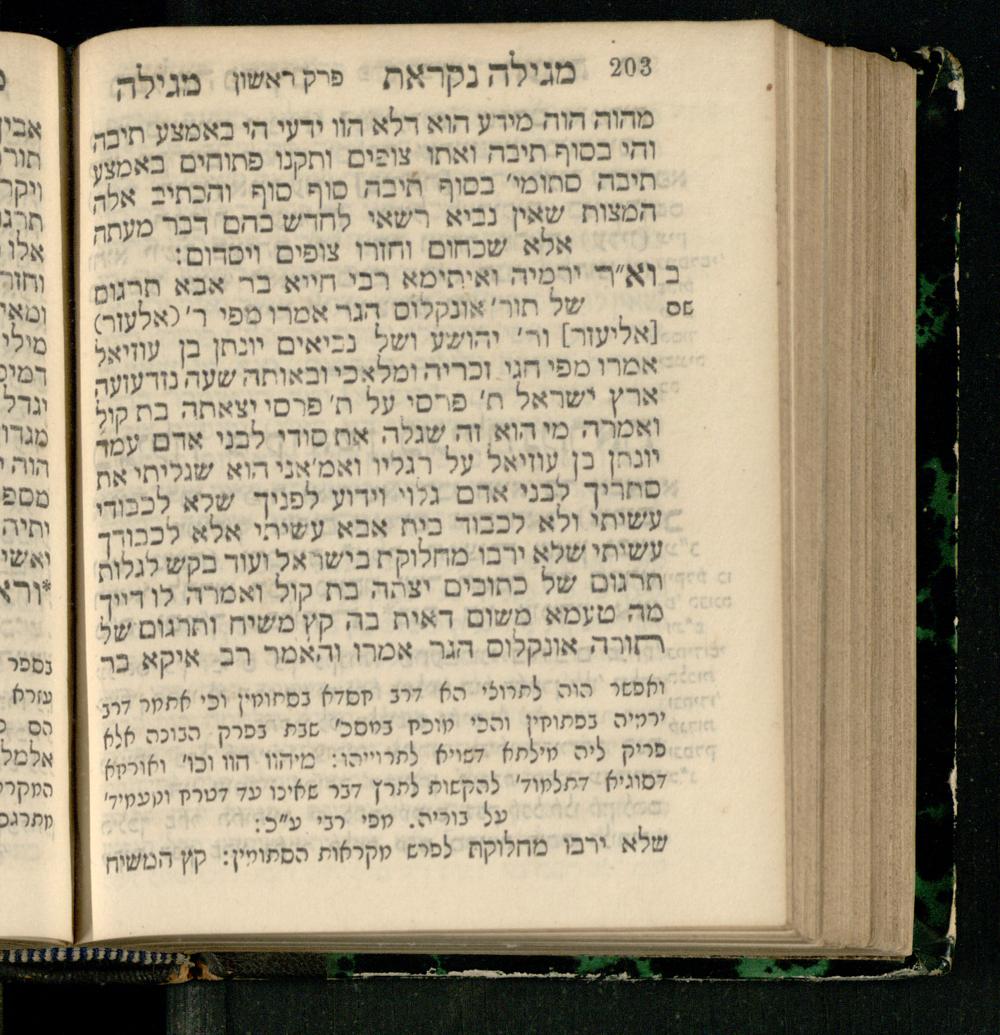 203 מגילה נקראת פרק ראשון מגילה
מהוה חוה מידע הוא דלא הוו ידעי הי באמצע תיבה
והי בסוף תיבה ואתו צופים ותקנו פתוחים באמצע
תיבה סתומי' בסוף תיבה סוף סוף והכתיב אלה
המצות שאין נביא רשאי לחדש בהם דבר מעתה
אלא שכחום וחזרו צופים ויסדום:
ב וא"ר ירמיה ואיתימא רבי חייא בר אבא תרגום
שם של תור' אונקלוס הגר אמרו מפי ר' (אלעזר)
[אליעזר] ור' יהושע ושל נביאים יונתן בן עוזיאל
אמרו מפי חגי זכריה ומלאכי ובאותה שעה נזדעזעה
ארץ ישראל ת' פרסי על ת' פרסי יצאתה בת קול
ואמרה מי הוא זה שגלה את סודי לבני אדם עמד
יונתן בן עוזיאל על רגליו ואמ' אני הוא שגליתי את
סתריך לבני אדם גלוי וידוע לפניך שלא לכבודי
עשיתי ולא לכבוד בית אבא עשיתי אלא לכבודך
עשיתי שלא ירבו מחלוקת בישראל ועוד בקש לגלות
תרגום של כתובים יצתה בת קול ואמרה לו דייך
מה טעמא משום דאית בה קץ משיח ותרגום של
תורה אונקלוס הגר אמרו והאמר רב איקא בר
ואפשר הוה לתרולי הא דרב חסדא בסתומין וכי אתמר דרב
ירמיה בפתוחין והכי מוכח במסכ' שבת בפרק הבונה אלא
פריק ליה מילתא דשויא לתרוייהו: מיהוו הוו וכו' ואורחא
דסוגיא דתלמוד' להקשות לתרץ דבר שאינו עד דטרח ומעמיד'
על בוריה. מפי רבי ע"כ:
שלא ירבו מחלוקת לפרש מקראות הסתומין: קץ המשיח